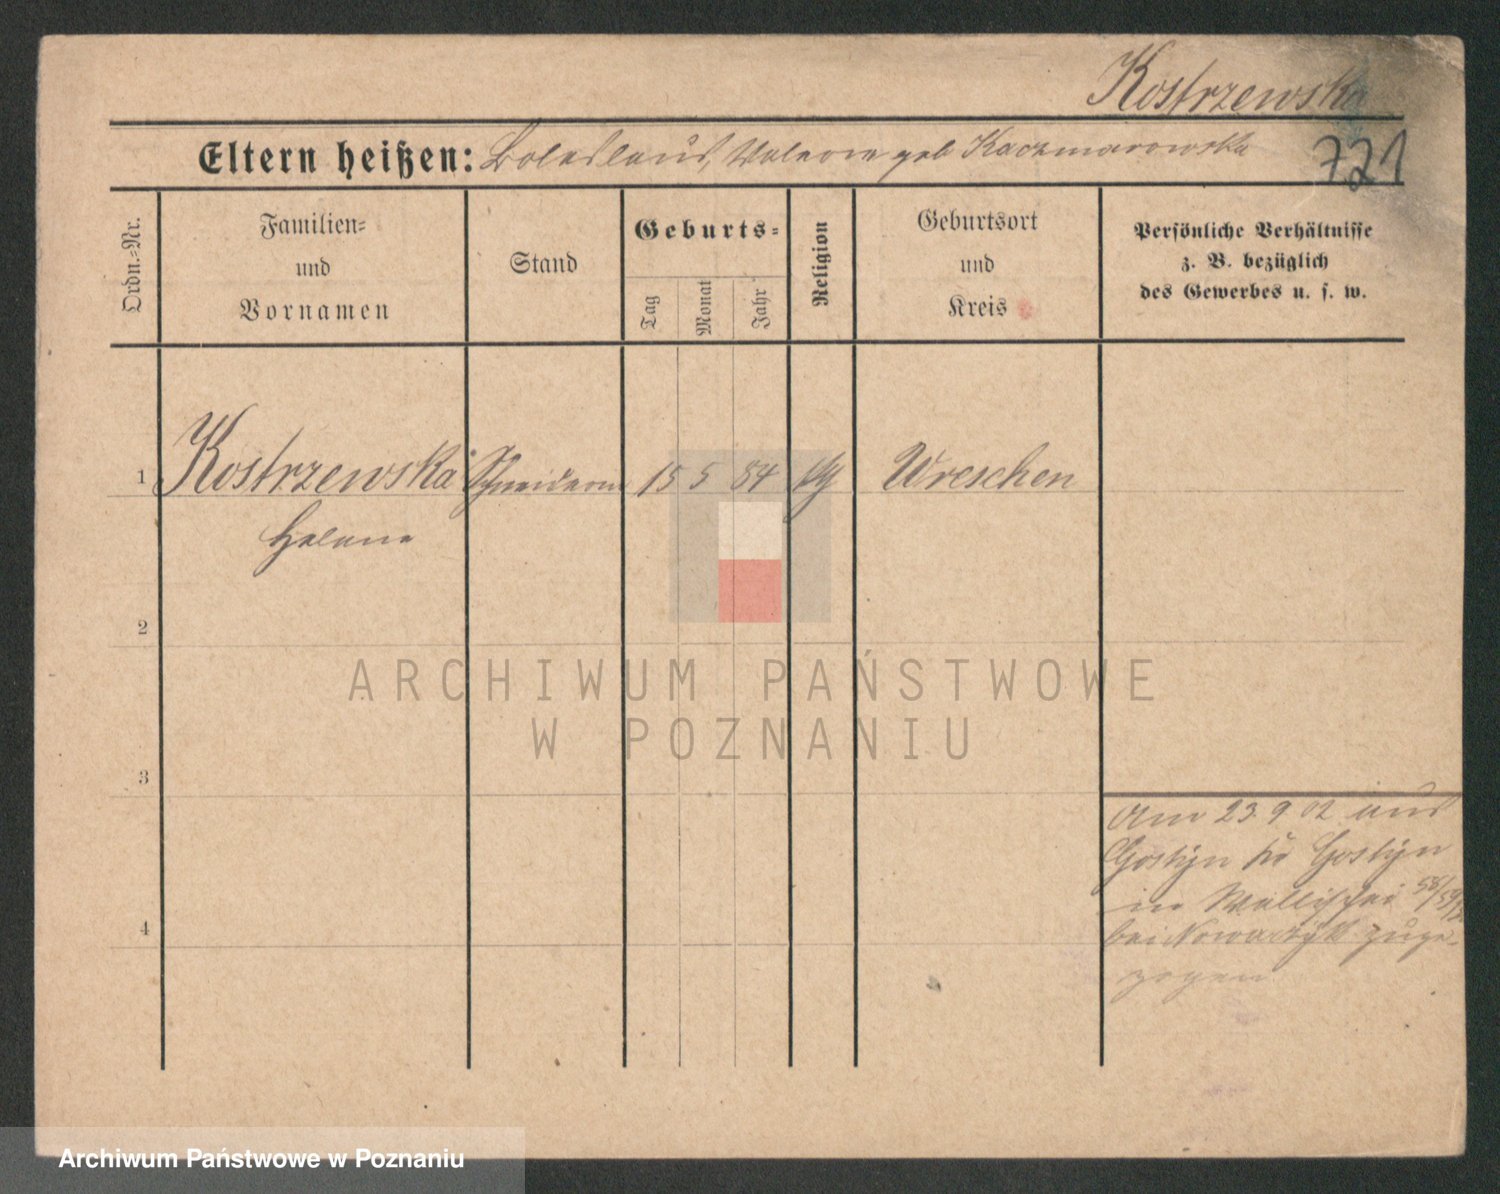 Kostrzewska
721
Eltern heißen: Boleslaus, Valeria geb Kaczmarowska
Ordn.-Nr.
Familien-
und
Vornamen
Stand
Geburts-
Tag
Monat
Jahr
Religion
Geburtsort
und
Kreis
Persönliche Verhältnisse
z. B. bezüglich
des Gewerbes u. s. w.
1 Kostrzewska Schneiderin 15 5 84 Wreschen
Helene
2
3
4
Am 23 9 02 aus
Gostyn Gostyn
in Wallischei
bei Nowaczyk zuge-
zogen
ARCHIWUM PAŃSTWOWE
W POZNANIU
Archiwum Państwowe w Poznaniu